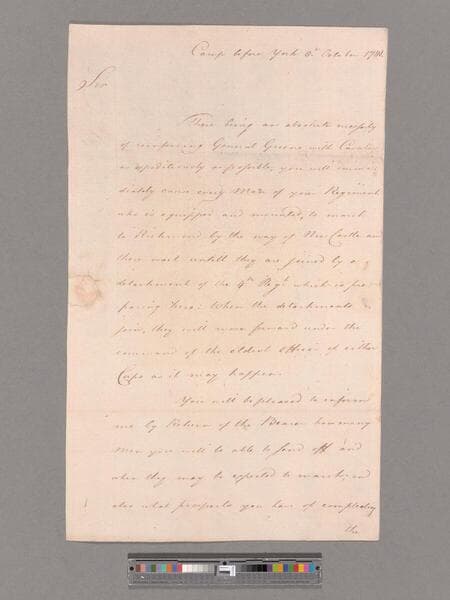 Camp before York 8th October 1781.
Sir
There being an absolute necessity
of reinforcing General Greene with Cavalry
as expeditiously as possible, you will imme-
diately cause every Man of your Regiment
who is equipped and mounted, to march
to Richmond by the way of New Castle and
there wait untill they are joined by a
detachment of the 4th Regt which is pre-
paring here. When the detachments
join, they will move forward under the
command of the oldest Officer of either
Corps as it may happen.
You will be pleased to inform
me by Return of the Bearer how many
Men you will be able to send off and
when they may be expected to march, and
also what prospects you have of compleating
the